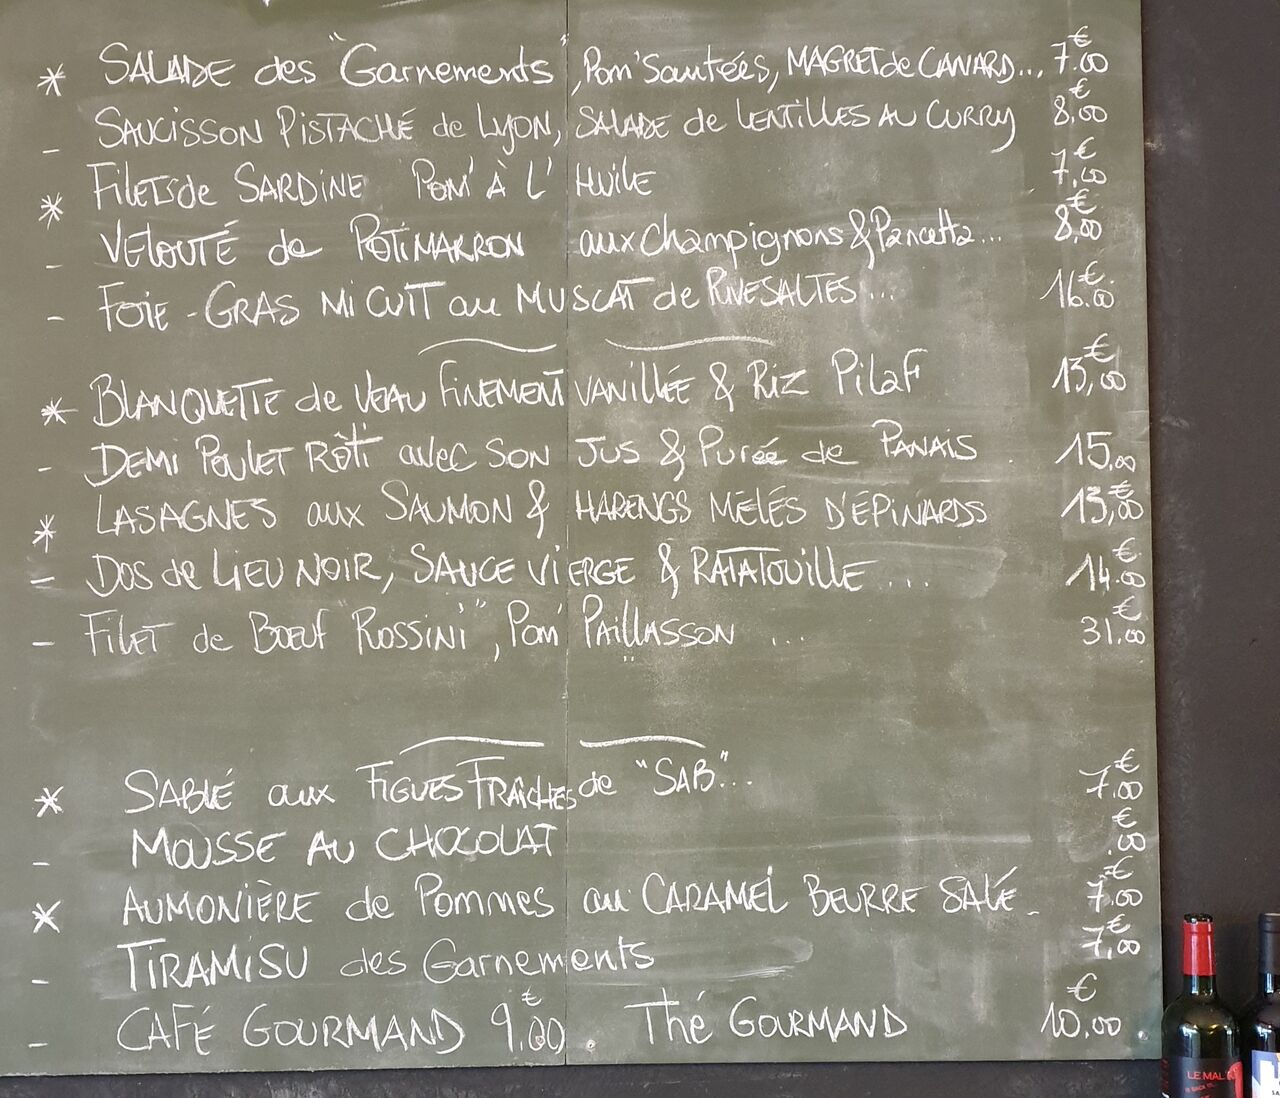 * SALADE des "Garnements", Pom' Sautées, MAGRET de CANARD... 7.00 €
- SAUCISSON PISTACHÉ de LYON, SALADE de LENTILLES AU CURRY 8,00 €
* FILETS de SARDINE POM' À L' HUILE 7,00 €
- VELOUTÉ de POTIMARRON aux Champignons & Pancetta... 8,00 €
- FOIE-GRAS MI CUIT au MUSCAT de RIVESALTES... 16.00 €
* BLANQUETTE de VEAU FINEMENT VANILLÉE & RIZ PILAF 13,00 €
- DEMI POULET RÔTI avec SON JUS & Purée de PANAIS 15,00
* LASAGNES aux SAUMON & HARENGS MÊLÉS D'ÉPINARDS 13,00 €
- DOS de LIEU NOIR, SAUCE VIERGE & RATATOUILLE... 14.00 €
- FILET de BOEUF "ROSSINI", POM' PAILLASSON ... 31.00 €
* SABLÉ aux FIGUES FRAÎCHES de "SAB"... 7.00 €
- MOUSSE AU CHOCOLAT .00 €
* AUMONIÈRE de Pommes au CARAMEL BEURRE SALÉ - 7.00 €
- TIRAMISU des Garnements 7,00 €
- CAFÉ GOURMAND 9.00 € Thé GOURMAND 10.00 €